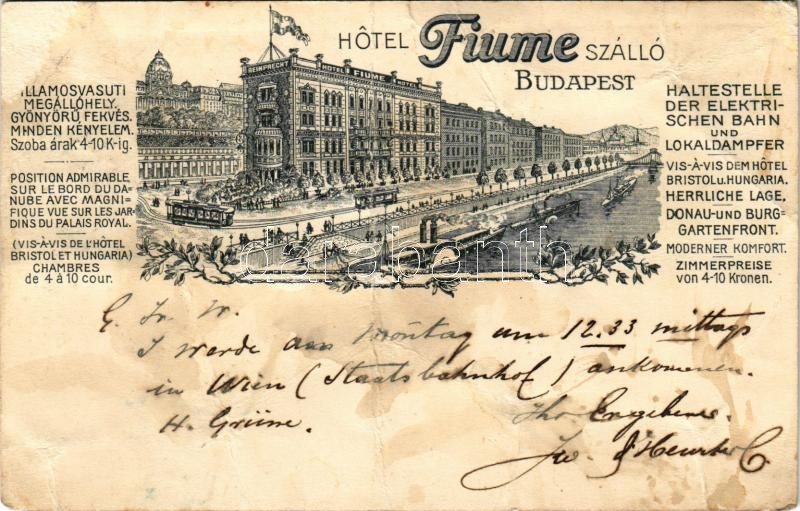 HÔTEL Fiume SZÁLLÓ
BUDAPEST
ILLAMOSVASUTI
MEGÁLLÓHELY.
GYÖNYÖRŰ FEKVÉS.
MINDEN KÉNYELEM.
Szoba árak 4-10 K-ig.
POSITION ADMIRABLE
SUR LE BORD DU DA-
NUBE AVEC MAGNI-
FIQUE VUE SUR LES JAR-
DINS DU PALAIS ROYAL.
(VIS-À-VIS DE L'HÔTEL
BRISTOL ET HUNGARIA)
CHAMBRES
de 4 à 10 cour.
HOTEL FIUME
HALTESTELLE
DER ELEKTRI-
SCHEN BAHN
UND
LOKALDAMPFER
VIS-À-VIS DEM HÔTEL
BRISTOL u. HUNGARIA.
HERRLICHE LAGE.
DONAU- UND BURG-
GARTENFRONT.
MODERNER KOMFORT.
ZIMMERPREISE
von 4-10 Kronen.
darabanth
I werde am Montag um 12.33 mittags
in Wien (Staatsbahnhof) ankommen.
H. Grüsse. Ihr